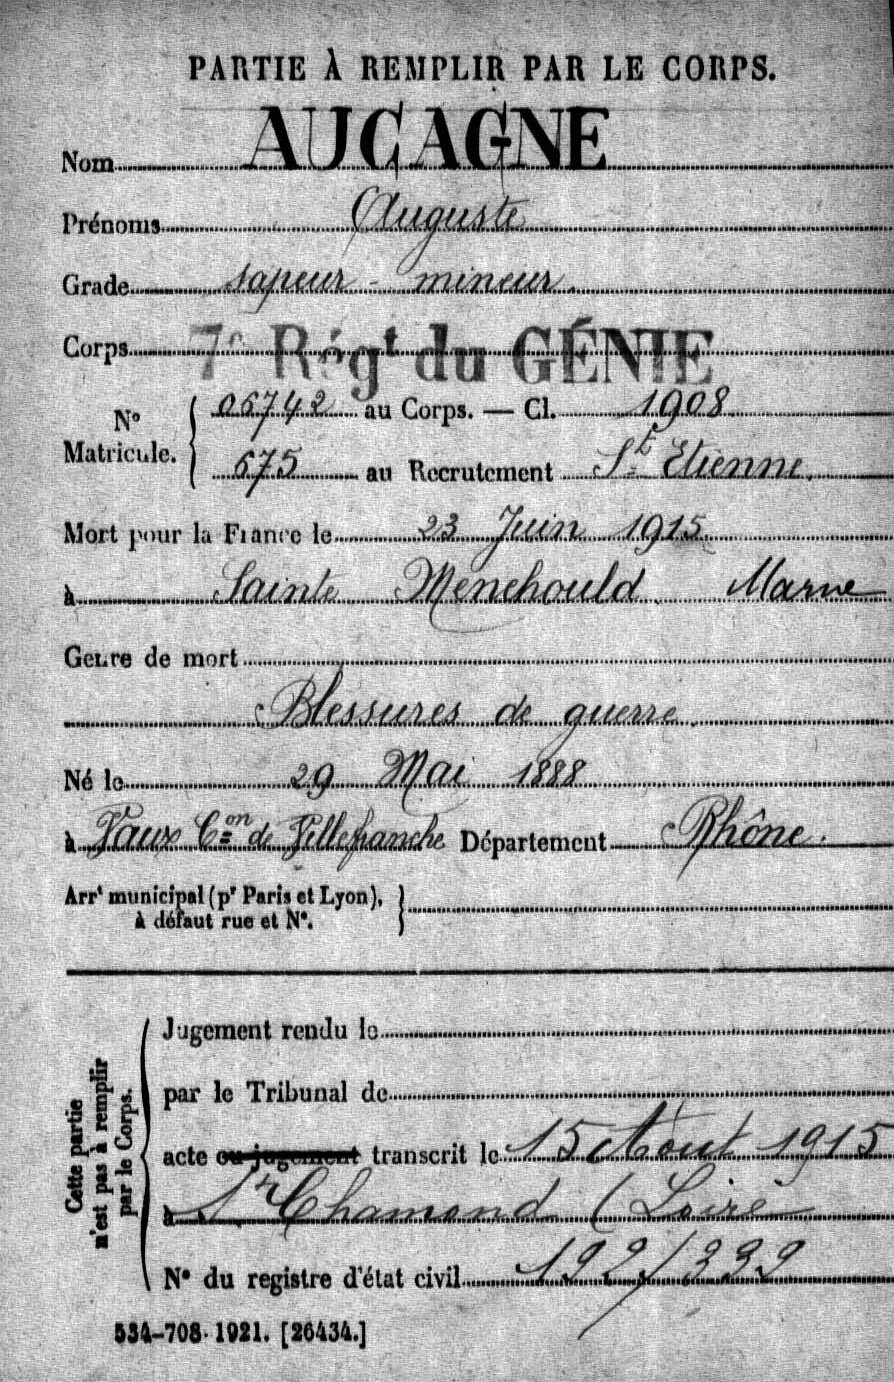 PARTIE À REMPLIR PAR LE CORPS.
Nom AUCAGNE
Prénoms Auguste
Grade sapeur - mineur.
Corps 7e Régt du GÉNIE
No Matricule. { 06742 au Corps. — Cl. 1908
675 au Recrutement St Etienne.
Mort pour la France le 23 Juin 1915
à Sainte Menehould. Marne
Genre de mort
Blessures de guerre.
Né le 29 Mai 1888
à Vaux Con de Villefranche Département Rhône.
Arrt municipal (pr Paris et Lyon), à défaut rue et No. }
Cette partie n'est pas à remplir par le Corps.
Jugement rendu le
par le Tribunal de
acte ou jugement transcrit le 15 Aout 1915
à St Chamond (Loire
No du registre d'état civil 192/339
534-708-1921. [26434.]